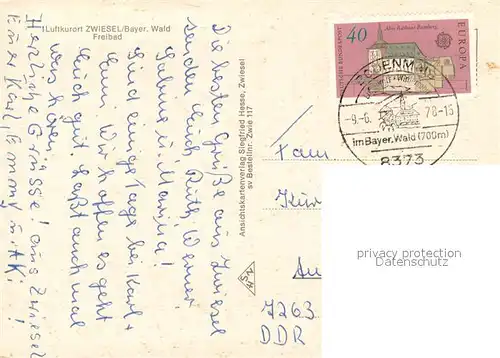 Luftkurort ZWIESEL/Bayer. Wald
Freibad
Die besten Grüße aus Zwiesel
senden Euch Ruth, Werner
Sabine u. Manja!
Sind einige Tage bei Karl +
Emmi. Wir hoffen es geht
Euch gut. Laßt auch mal
was hören.
Herzliche Grüsse! aus Zwiesel
Euer Karl, Emmy
Ansichtskartenverlag Siegfried Hesse, Zwiesel
sv Bestellnr. Zwie 117
DEUTSCHE BUNDESPOST
40
Altes Rathaus Bamberg
EUROPA
CEPT
BODENMAIS
-9.-6. 78-15
im Bayer. Wald (700m)
8373
Fam
7263
DDR
privacy protection
Datenschutz